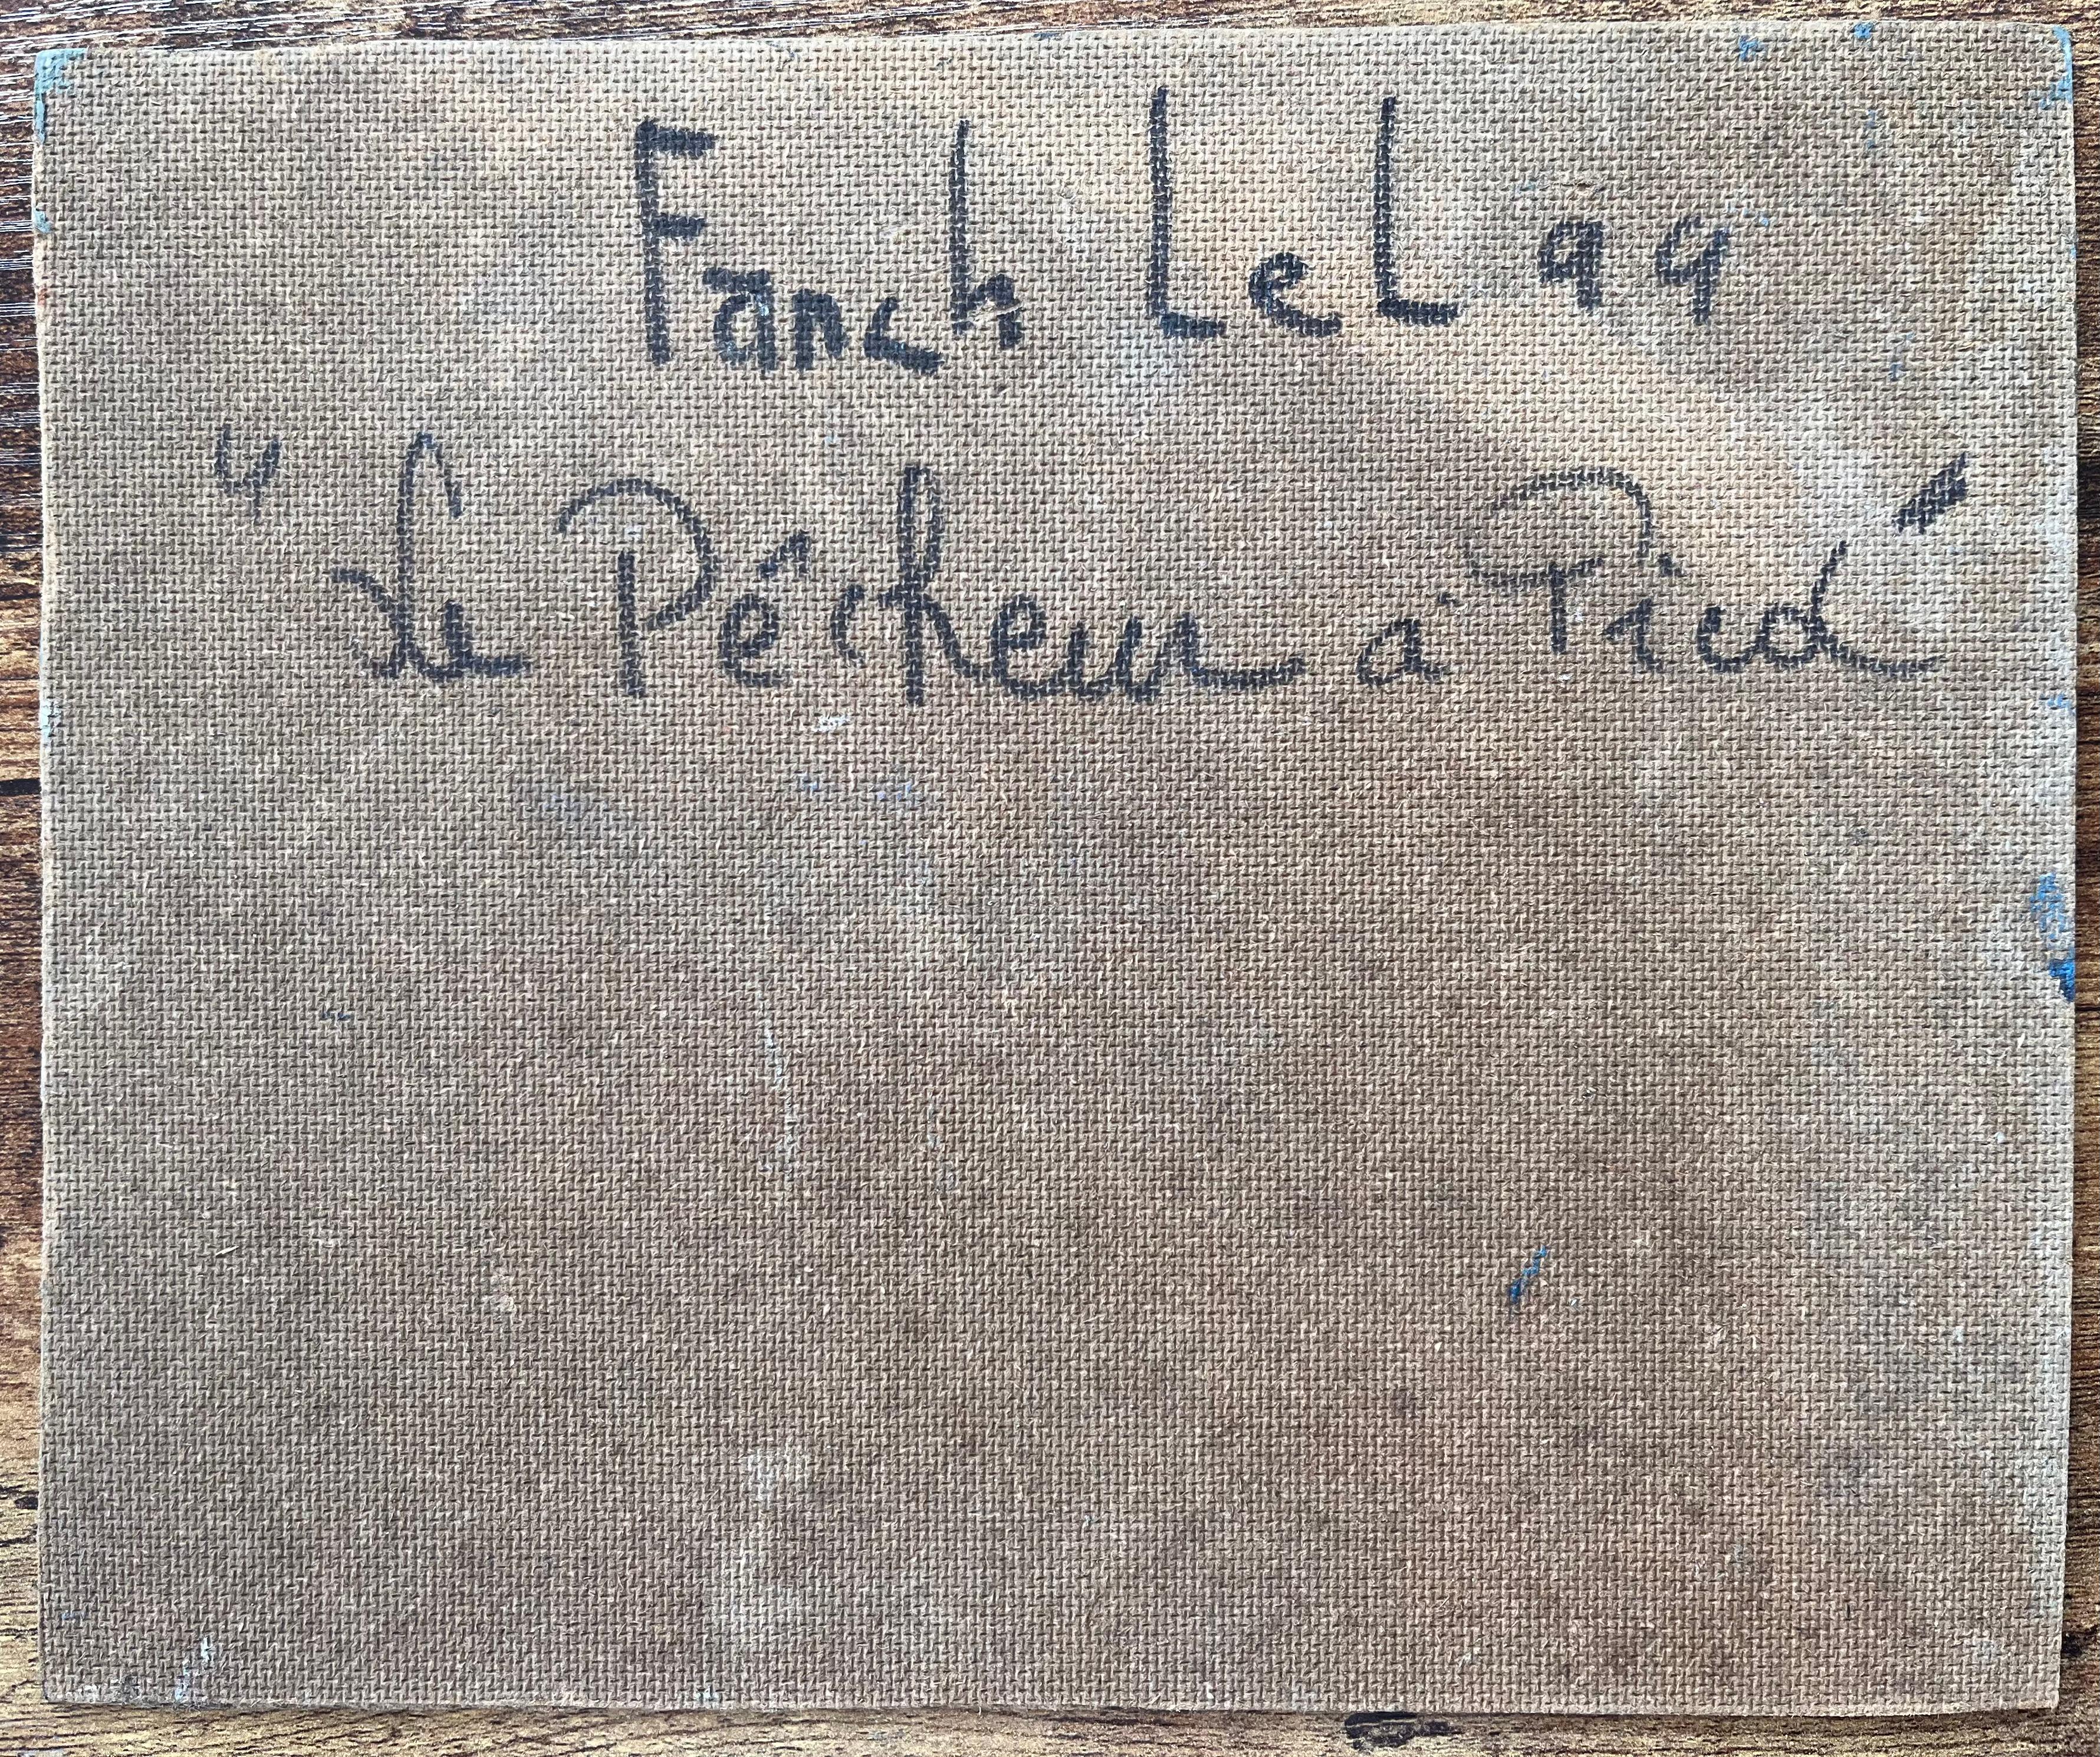 Fanch LeL 99
"Le Pêcheur à Pied"